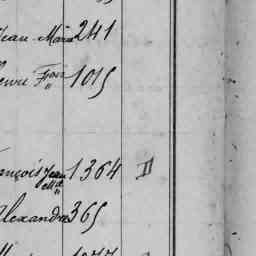 Jean Marie 241
Fçois 1015
ançois Jean Mie 1364 II
Alexandre 365